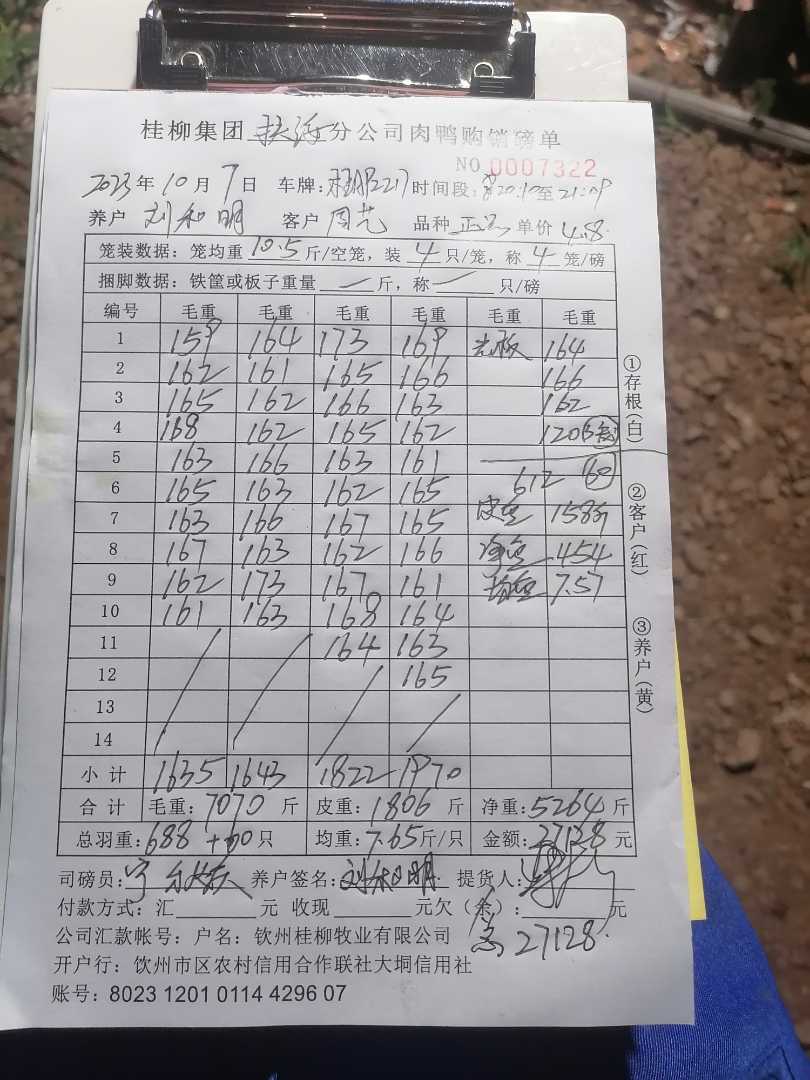 桂柳集团 扶绥 分公司肉鸭购销磅单
NO 0007322
2023 年 10 月 7 日 车牌: 时间段: 20:10 至 21:09
养户 刘和明 客户 周艺 品种 正品 单价 4.8
笼装数据: 笼均重 10.5 斤/空笼, 装 4 只/笼, 称 4 笼/磅
捆脚数据: 铁筐或板子重量 — 斤, 称 — 只/磅
编号 毛重 毛重 毛重 毛重 毛重 毛重
1 159 164 173 169 164
2 162 161 165 166 166
3 165 162 166 163 162
4 168 162 165 162 120
5 163 166 163 161 612 60
6 165 163 162 165
7 163 166 167 165 皮重 158斤
8 167 163 162 166 净重 454
9 162 173 167 161 均重 7.57
10 161 163 168 164
11 164 163
12 165
13
14
小计 1635 1643 1822 1970
合计 毛重: 7070 斤 皮重: 1806 斤 净重: 5264 斤
总羽重: 688 +60 只 均重: 7.65 斤/只 金额: 27128 元
司磅员: 养户签名: 刘和明 提货人:
付款方式: 汇 元 收现 元 欠(余): 元
公司汇款帐号: 户名: 钦州桂柳牧业有限公司 27128.
开户行: 钦州市区农村信用合作联社大垌信用社
账号: 8023 1201 0114 4296 07
①存根(白)
②客户(红)
③养户(黄)